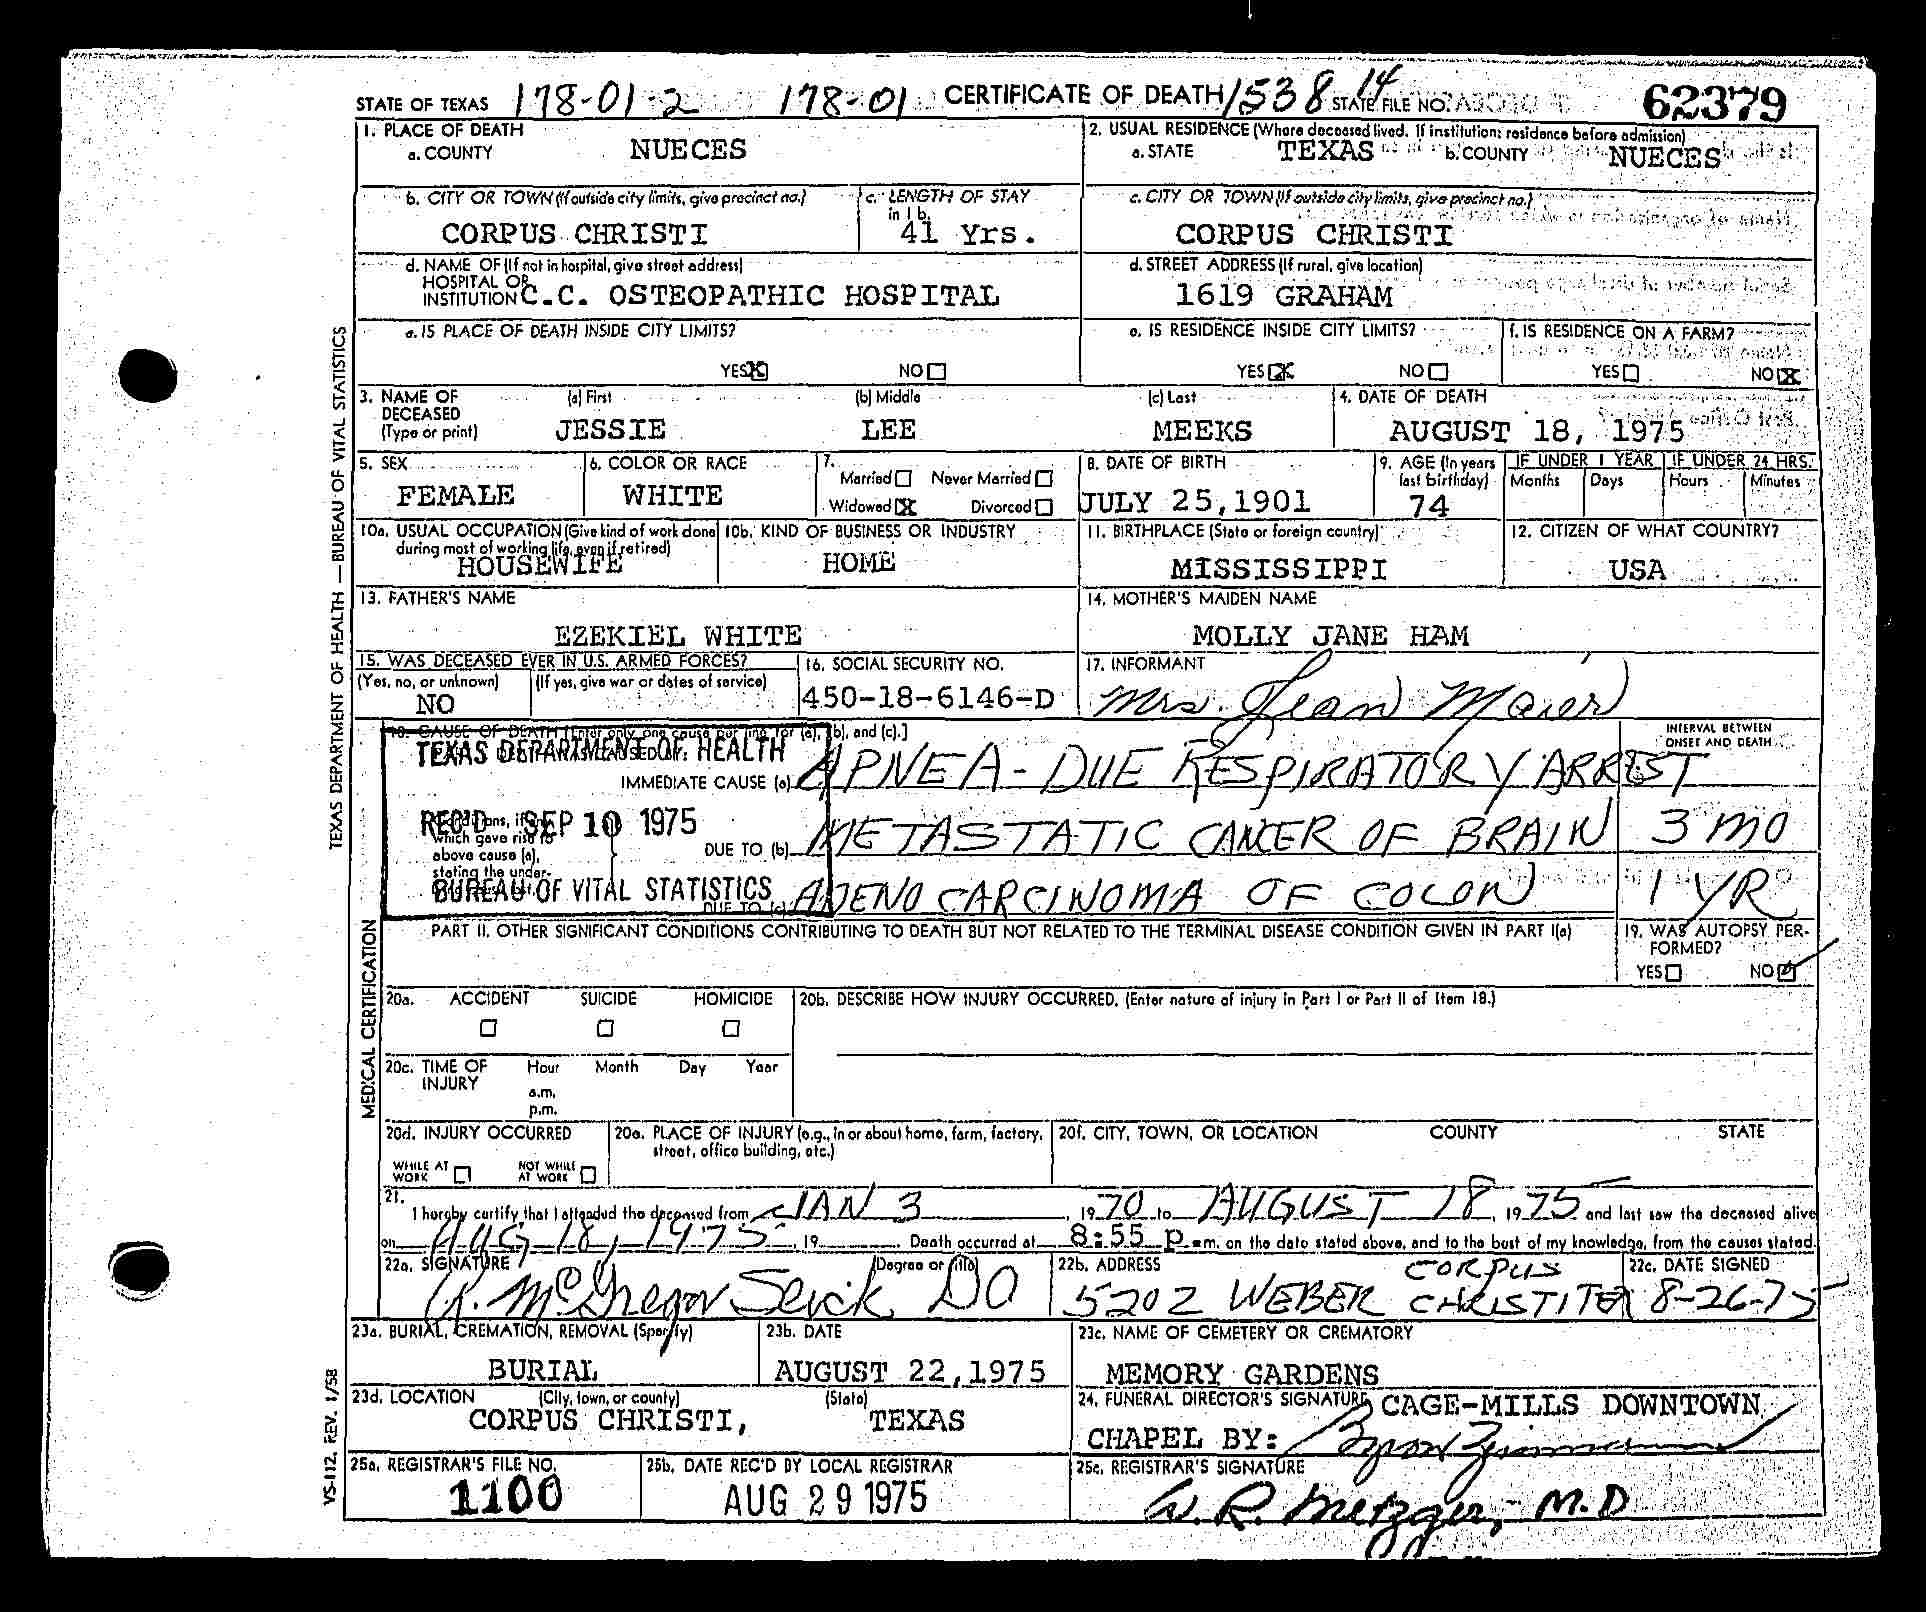 STATE OF TEXAS 178-01-2 178-01 CERTIFICATE OF DEATH 1538 14 STATE FILE NO. 62379
1. PLACE OF DEATH
a. COUNTY NUECES
2. USUAL RESIDENCE (Where deceased lived. If institution: residence before admission)
a. STATE TEXAS b. COUNTY NUECES
b. CITY OR TOWN (If outside city limits, give precinct no.)
CORPUS CHRISTI
c. LENGTH OF STAY
in 1 b.
41 Yrs.
c. CITY OR TOWN (If outside city limits, give precinct no.)
CORPUS CHRISTI
d. NAME OF (If not in hospital, give street address)
HOSPITAL OR
INSTITUTION C.C. OSTEOPATHIC HOSPITAL
d. STREET ADDRESS (If rural, give location)
1619 GRAHAM
e. IS PLACE OF DEATH INSIDE CITY LIMITS?
YES X NO
e. IS RESIDENCE INSIDE CITY LIMITS?
YES X NO
f. IS RESIDENCE ON A FARM?
YES NO X
3. NAME OF DECEASED (Type or print)
(a) First (b) Middle (c) Last
JESSIE LEE MEEKS
4. DATE OF DEATH
AUGUST 18, 1975
5. SEX
FEMALE
6. COLOR OR RACE
WHITE
7.
Married Never Married
Widowed X Divorced
8. DATE OF BIRTH
JULY 25,1901
9. AGE (In years last birthday)
74
IF UNDER 1 YEAR IF UNDER 24 HRS.
Months Days Hours Minutes
10a. USUAL OCCUPATION (Give kind of work done
during most of working life, even if retired)
HOUSEWIFE
10b. KIND OF BUSINESS OR INDUSTRY
HOME
11. BIRTHPLACE (State or foreign country)
MISSISSIPPI
12. CITIZEN OF WHAT COUNTRY?
USA
13. FATHER'S NAME
EZEKIEL WHITE
14. MOTHER'S MAIDEN NAME
MOLLY JANE HAM
15. WAS DECEASED EVER IN U.S. ARMED FORCES?
(Yes, no, or unknown) (If yes, give war or dates of service)
NO
16. SOCIAL SECURITY NO.
450-18-6146-D
17. INFORMANT
Mrs. Jean Maier
18. CAUSE OF DEATH [Enter only one cause per line for (a), (b), and (c).]
INTERVAL BETWEEN
ONSET AND DEATH
TEXAS DEPARTMENT OF HEALTH
IMMEDIATE CAUSE (a) APNEA - DUE RESPIRATORY ARREST
REC'D SEP 10 1975
which gave rise to
above cause (a),
stating the under-
DUE TO (b) METASTATIC CANCER OF BRAIN 3 MO
BUREAU OF VITAL STATISTICS
DUE TO (c) ADENOCARCINOMA OF COLON 1 YR
PART II. OTHER SIGNIFICANT CONDITIONS CONTRIBUTING TO DEATH BUT NOT RELATED TO THE TERMINAL DISEASE CONDITION GIVEN IN PART I(a)
19. WAS AUTOPSY PER-
FORMED?
YES NO
20a. ACCIDENT SUICIDE HOMICIDE
20b. DESCRIBE HOW INJURY OCCURRED. (Enter nature of injury in Part I or Part II of Item 18.)
20c. TIME OF INJURY Hour Month Day Year
a.m.
p.m.
20d. INJURY OCCURRED
WHILE AT WORK NOT WHILE AT WORK
20e. PLACE OF INJURY (e.g., in or about home, farm, factory,
street, office building, etc.)
20f. CITY, TOWN, OR LOCATION COUNTY STATE
21.
I hereby certify that I attended the deceased from JAN 3, 1970 to AUGUST 18, 1975 and last saw the deceased alive
on AUG 18, 1975, 19 Death occurred at 8:55 p.m. on the date stated above, and to the best of my knowledge, from the causes stated.
22a. SIGNATURE (Degree or title)
McGregor DO
22b. ADDRESS
5202 WEBER CORPUS CHRISTI TEX
22c. DATE SIGNED
8-26-75
23a. BURIAL, CREMATION, REMOVAL (Specify)
BURIAL
23b. DATE
AUGUST 22,1975
23c. NAME OF CEMETERY OR CREMATORY
MEMORY GARDENS
23d. LOCATION (City, town, or county) (State)
CORPUS CHRISTI, TEXAS
24. FUNERAL DIRECTOR'S SIGNATURE CAGE-MILLS DOWNTOWN
CHAPEL BY: Byron Zimmerman
25a. REGISTRAR'S FILE NO.
1100
25b. DATE REC'D BY LOCAL REGISTRAR
AUG 29 1975
25c. REGISTRAR'S SIGNATURE
W. R. Metzger, M.D
TEXAS DEPARTMENT OF HEALTH — BUREAU OF VITAL STATISTICS
MEDICAL CERTIFICATION
VS-112, REV. 1/58